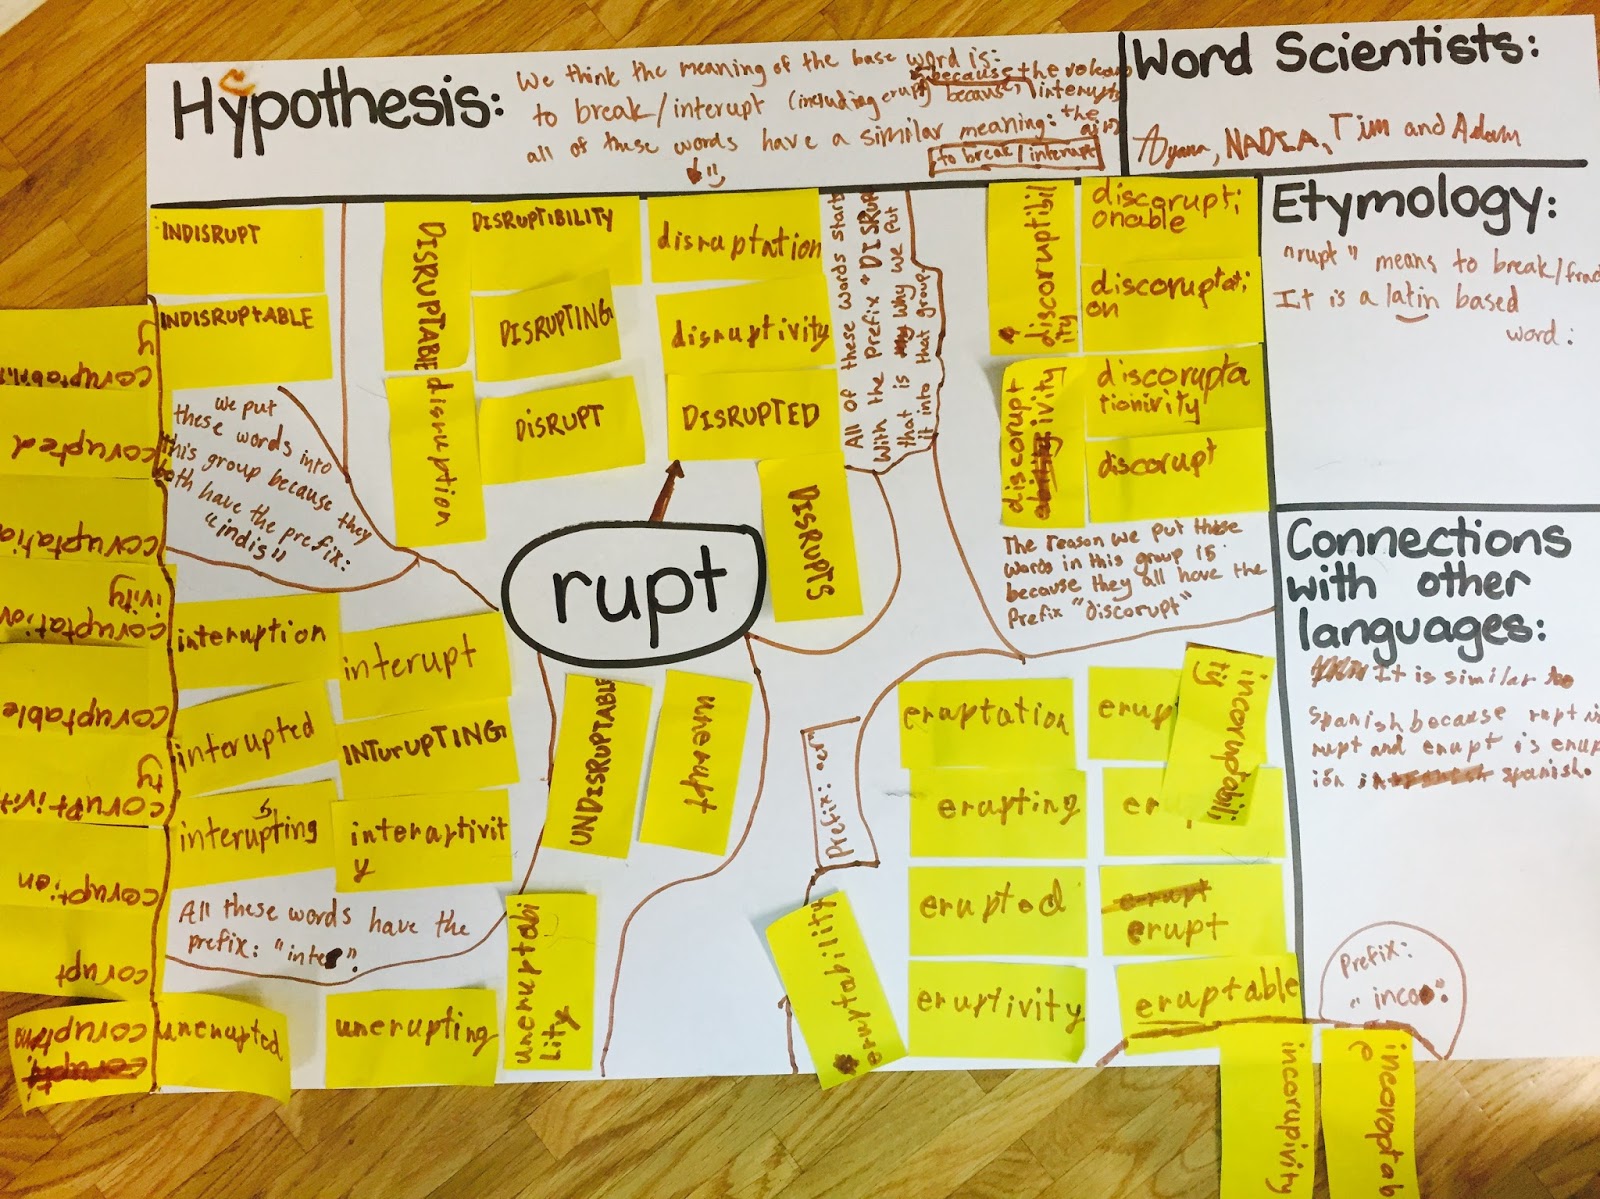 Hypothesis:
We think the meaning of the base word is:
to break/interupt (including erupt) because
because the
interupts
all of these words have a similar meaning: the
to break/interupt
Word Scientists:
Ayana, NADIA, Tim and Adam
INDISRUPT
INDISRUPTABLE
we put
these words into
this group because they
both have the prefix:
"indis"
DISRUPTABLE
DISRUPTIBILITY
disruptation
DISRUPTING
disruptivity
disruption
DISRUPT
DISRUPTED
DISRUPTS
All of these words start
With the Prefix "DISRUP
that is why we put
it into that group
discoruptibil
ity
discorupti
onable
discoruptati
on
discorupt
ivity
discorupta
tionivity
discorupt
The reason we put these
words in this group is
because they all have the
Prefix "discorupt"
Etymology:
"rupt" means to break/frac
It is a latin based
word:
Connections
with other
languages:
It is similar to
Spanish because rupt is
rupt and erupt is erup
ión spanish.
rupt
interuption
interupt
interupted
INTURUPTING
interupting
interartivit
y
All these words have the
prefix: "inter".
UNDISRUPTABLE
unerupt
unerupted
unerupting
uneruptabi
lity
Prefix: "er"
eruptation
erup
incoruptabili
ty
erupting
er
erupted
erupt
erupt
eruptivity
eruptable
eruptability
Prefix:
"incor".
incorupivity
incoruptabl
e
coruptabili
ty
corupted
coruptatio
coruptation
ivity
coruptable
coruptivit
ty
coruption
corupt